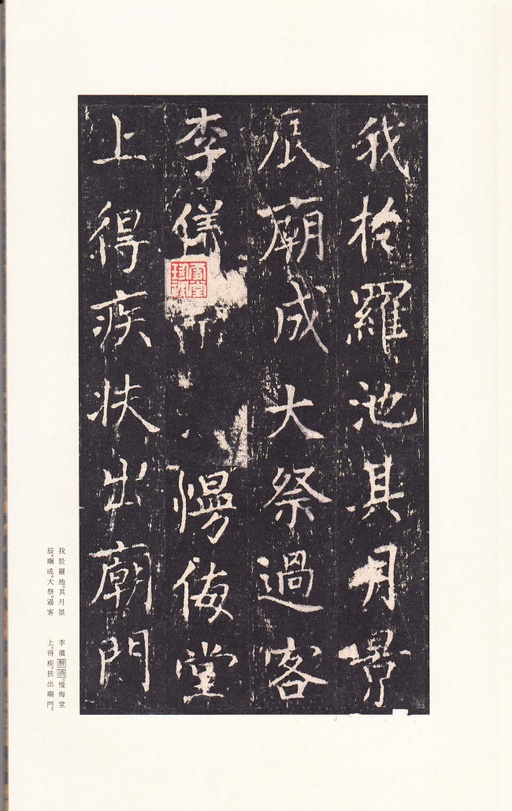 我於羅池其月景
辰廟成大祭過客
李儀
慢侮堂
上得疾扶出廟門
雪堂
珍祕
我於羅池。其月景
辰。廟成。大祭。過客
李儀醉酒。慢侮堂
上。得疾。扶出廟門。